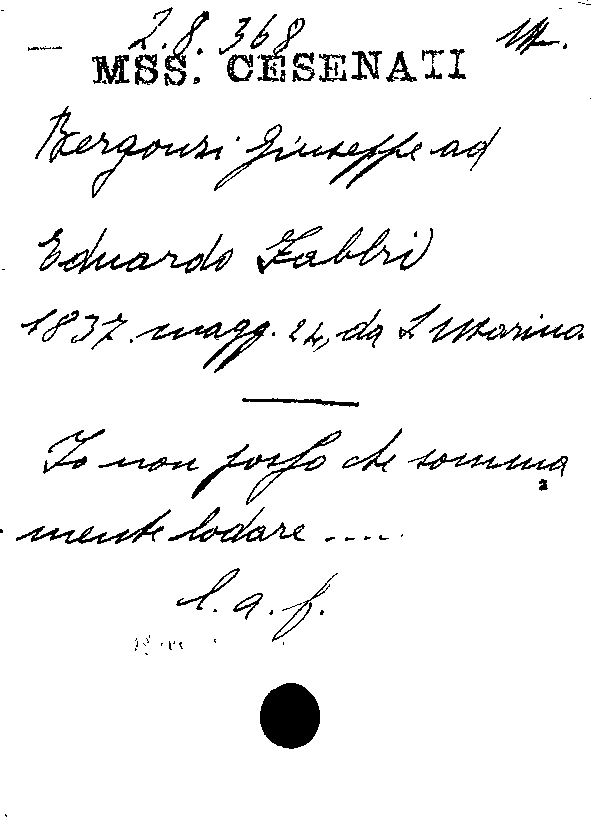 2.8.368
MSS. CESENATI
Bergonzi Giuseppe ad
Eduardo Fabbri
1837. magg. 24, da S. Marino.
Io non posso che somma
mente lodare ....
l. a. f.